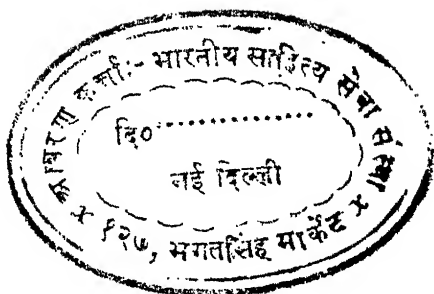 वितरण कर्त्ता:- भारतीय साहित्य सेवा संस्था
दि०..................
नई दिल्ली
× १२७, भगतसिंह मार्केट ×